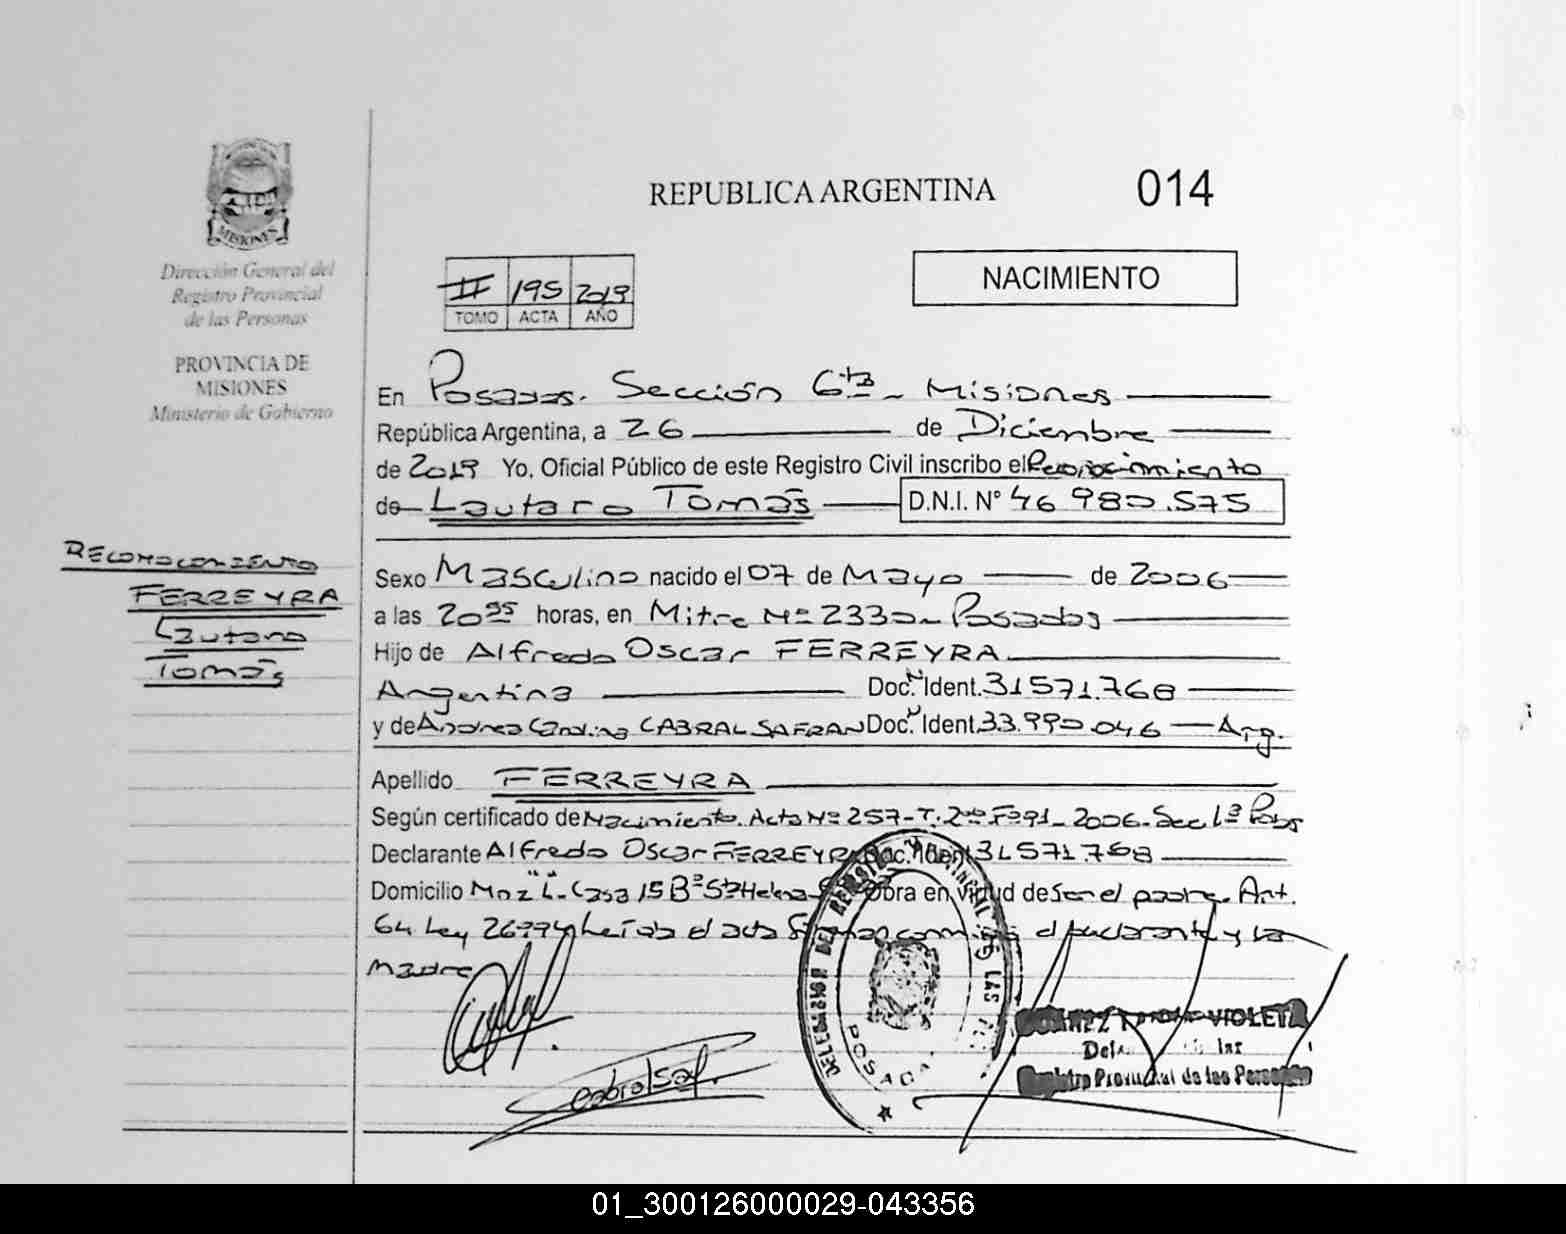 REPUBLICA ARGENTINA
014
MISIONES
Dirección General del
Registro Provincial
de las Personas
PROVINCIA DE
MISIONES
Ministerio de Gobierno
II 195 2019
TOMO ACTA AÑO
NACIMIENTO
En Posadas. Sección 6ta - Misiones
República Argentina, a 26 de Diciembre
de 2019 Yo, Oficial Público de este Registro Civil inscribo el Reconocimiento
de Lautaro Tomás D.N.I. Nº 46 980.575
RECONOCIMIENTO
FERREYRA
Lautaro
Tomás
Sexo Masculino nacido el 07 de Mayo de 2006
a las 20 horas, en Mitre Nº 2330 - Posadas
Hijo de Alfredo Oscar FERREYRA
Argentina Doc. Ident. 31571.768
y de Andrea Carolina CABRAL SAFRAN Doc. Ident. 33.990.046 - Arg.
Apellido FERREYRA
Según certificado de Nacimiento. Acta Nº 257 - T. 2do Fº 91 - 2006 - Sec 1ª Pdas
Declarante Alfredo Oscar FERREYRA Doc. Ident 31571.768
Domicilio Mnz "L" - Casa 15 Bº Sta Helena Obra en virtud de Ser el padre. Art.
64 Ley 26994 Leída el acta Firman conmigo el declarante y la
Madre
Cabral Saf.
DELEGACION DEL REGISTRO PROVINCIAL DE LAS
POSADAS
VIOLETA
Registro Provincial de las Personas
01_300126000029-043356